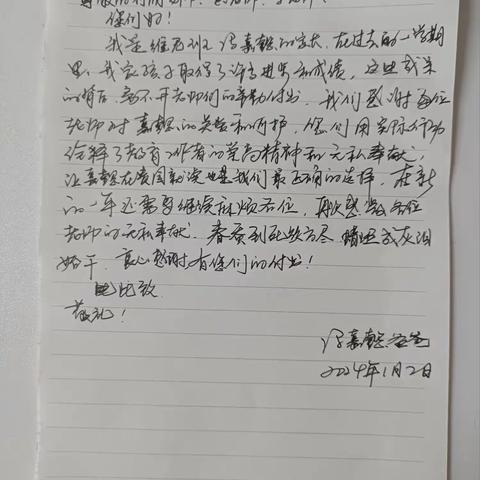 您们好！
我是维尼班冯嘉懿的家长，在过去的一学期
里，我家孩子取得了许多进步和成绩，这些成果
的背后，离不开老师们的辛勤付出。我们感谢每位
老师对嘉懿的关爱和呵护，您们用实际行动
诠释了教育工作者的崇高精神和无私奉献，
让嘉懿在贵园就读也是我们最正确的选择，在新
的一年还需要继续麻烦各位，再次感谢各位
老师的无私奉献。春蚕到死丝方尽，蜡炬成灰泪
始干，衷心感谢有您们的付出！
此致
敬礼！
冯嘉懿爸爸
2024年1月2日